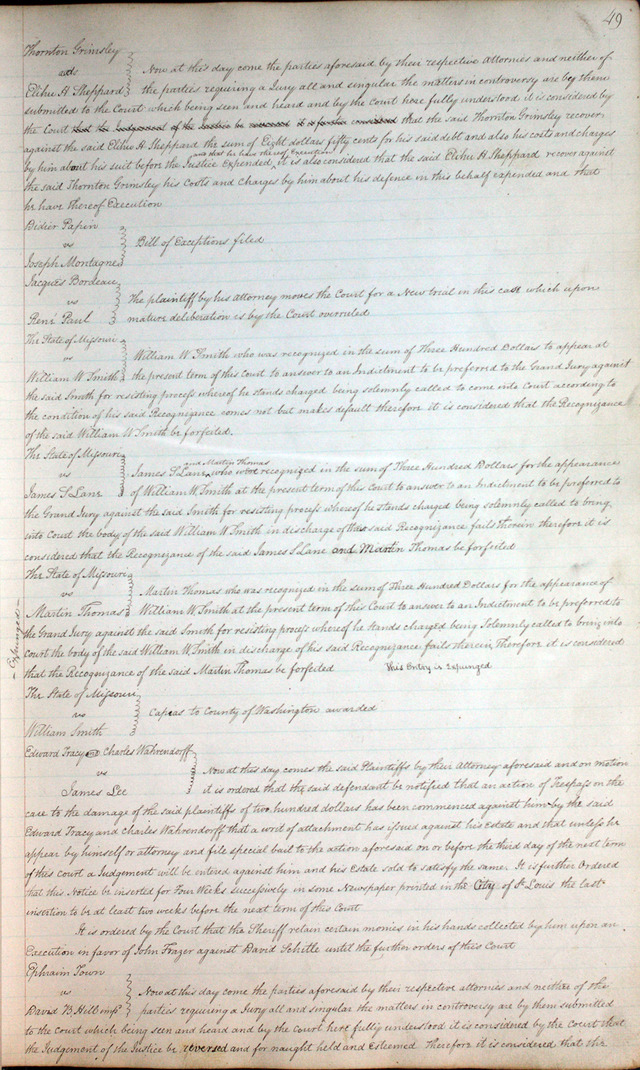 49
Thornton Grimsley
vs
Elihu H Sheppard
Now at this day come the parties aforesaid by their respective Attornies and neither of
the parties requiring a Jury all and singular the matters in controversy are by them
submitted to the Court which being seen and heard and by the Court here fully understood it is considered by
the Court that the Judgement of the Justice be reversed it is further considered that the said Thornton Grimsley recover
against the said Elihu H Sheppard the sum of Eight dollars fifty cents for his said debt and also his costs and charges
and that he have thereof Execution
by him about his suit before the Justice Expended, it is also considered that the said Elihu H. Sheppard recover against
the said Thornton Grimsley his Costs and Charges by him about his defence in this behalf expended and that
he have thereof Execution
Bidier Papin
vs
Joseph Montagne
Bill of Exceptions filed
Jacques Bordeau
vs
Rene Paul
The plaintiff by his Attorney moves the Court for a New trial in this case which upon
mature deliberation is by the Court overruled
The State of Missouri
vs
William W. Smith
William W. Smith who was recognized in the sum of Three Hundred Dollars to appear at
the present term of this Court to answer to an Indictment to be preferred to the Grand Jury against
the said Smith for resisting process whereof he stands charged being solemnly called to come into Court according to
the condition of his said Recognizance comes not but makes default therefore it is considered that the Recognizance
of the said William W Smith be forfeited.
The State of Missouri
vs
James S Lane
and Martin Thomas
James S Lane who was recognized in the sum of Three Hundred Dollars for the appearance
of William W. Smith at the present term of this Court to answer to an Indictment to be preferred to
the Grand Jury against the said Smith for resisting process whereof he stands charged being solemnly called to bring
into Court the body of the said William W Smith in discharge of this said Recognizance fails therein therefore it is
considered that the Recognizance of the said James S Lane and Martin Thomas be forfeited
The State of Missouri
vs
Martin Thomas
Martin Thomas who was recognized in the sum of Three Hundred Dollars for the appearance of
William W Smith at the present term of this Court to answer to an Indictment to be preferred to
the Grand Jury against the said Smith for resisting process whereof he stands charged being Solemnly called to bring into
Court the body of the said William W. Smith in discharge of his said Recognizance fails therein, therefore it is considered
that the Recognizance of the said Martin Thomas be forfeited This Entry is Expunged
- Expunged -
The State of Missouri
vs
William Smith
Capias to County of Washington awarded
Edward Tracy and Charles Wahrendorff
vs
James Lee
Now at this day comes the said Plaintiffs by their Attorney aforesaid and on motion
it is ordered that the said defendant be notified that an action of Trespass on the
case to the damage of the said plaintiffs of two hundred dollars has been commenced against him by the said
Edward Tracy and Charles Wahrendorff that a writ of attachment has issued against his Estate and that unless he
appear by himself or attorney and file special bail to the action aforesaid on or before the third day of the next term
of this court a Judgement will be entered against him and his Estate sold to satisfy the same. It is further Ordered
that this Notice be inserted for Four Weeks successively in some Newspaper printed in the City of St Louis the last
insertion to be at least two weeks before the next term of this Court
It is ordered by the Court that the Sheriff retain certain monies in his hands collected by him upon an
Execution in favor of John Frazer against David Schitle until the further orders of this Court
Ephraim Town
vs
David B Hill
Now at this day come the parties aforesaid by their respective attornies and neither of the
parties requiring a Jury all and singular the matters in controversy are by them submitted
to the Court which being seen and heard and by the Court here fully understood it is considered by the Court that
the Judgement of the Justice be reversed and for naught held and Esteemed Therefore it is considered that the